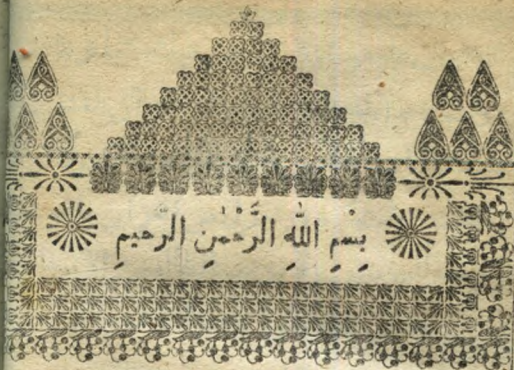 بِسْمِ اللهِ الرَّحْمٰنِ الرَّحيمِ